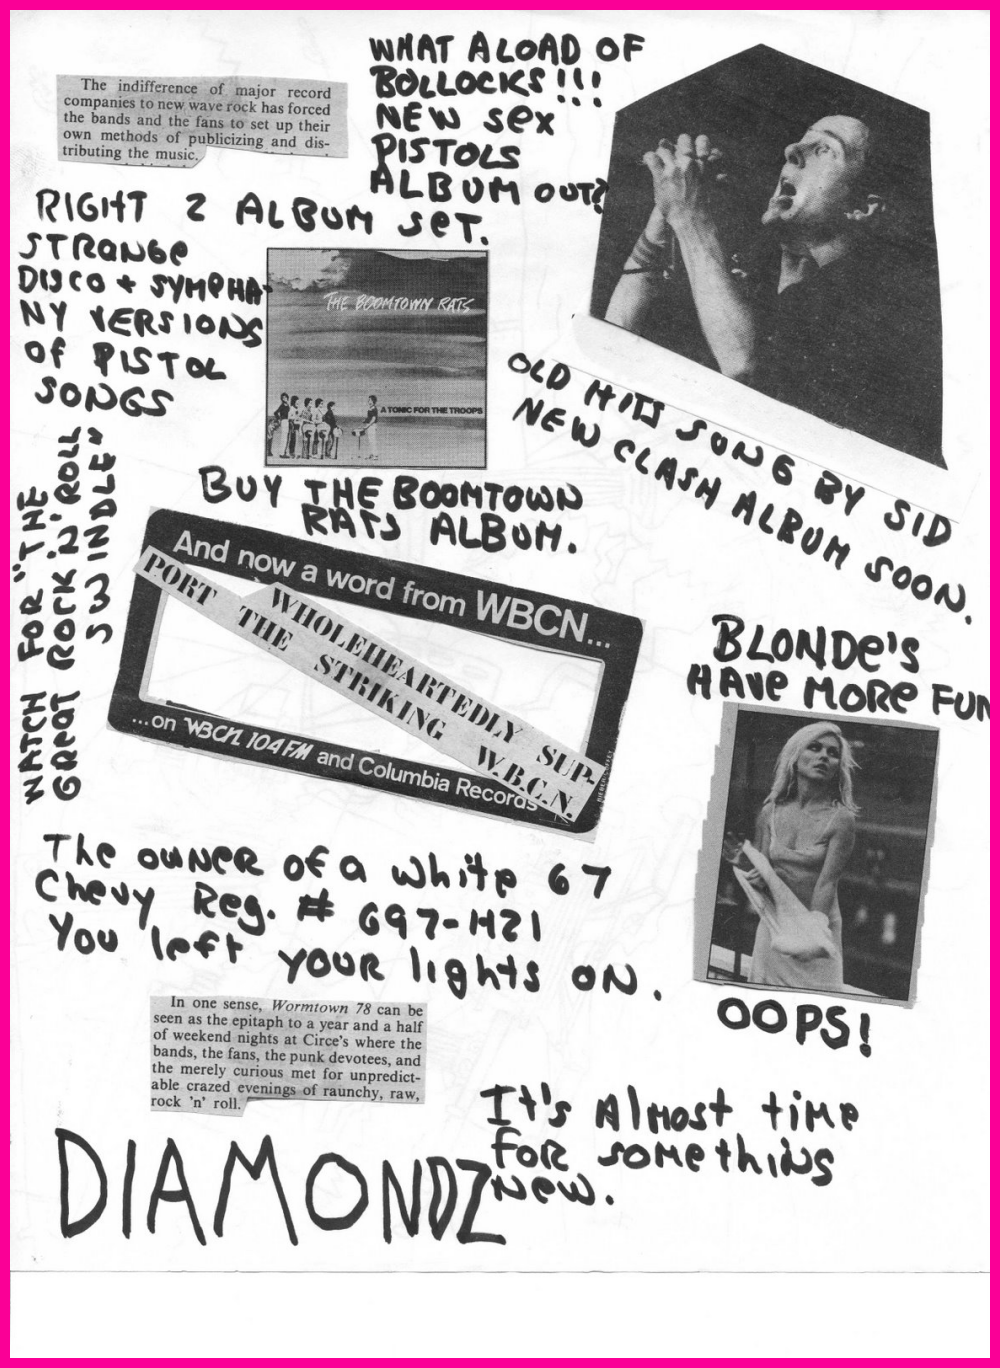 The indifference of major record
companies to new wave rock has forced
the bands and the fans to set up their
own methods of publicizing and dis-
tributing the music.
WHAT A LOAD OF
BOLLOCKS!!!
NEW SEX
PISTOLS
ALBUM OUT?
RIGHT 2 ALBUM SET.
STRANGE
DISCO + SYMPHA-
NY VERSIONS
OF PISTOL
SONGS
THE BOOMTOWN RATS
A TONIC FOR THE TROOPS
OLD HITS SUNG BY SID
NEW CLASH ALBUM SOON.
WATCH FOR "THE
GREAT ROCK 'N' ROLL
SWINDLE"
BUY THE BOOMTOWN
RATS ALBUM.
And now a word from WBCN...
WHOLEHEARTEDLY SUP-
PORT THE STRIKING W.B.C.N.
...on WBCN 104 FM and Columbia Records
BLONDE'S
HAVE MORE FUN
The owner of a white 67
Chevy Reg. # 697-M21
You left your lights on.
OOPS!
In one sense, Wormtown 78 can be
seen as the epitaph to a year and a half
of weekend nights at Circe's where the
bands, the fans, the punk devotees, and
the merely curious met for unpredict-
able crazed evenings of raunchy, raw,
rock 'n' roll.
It's Almost time
for something
new.
DIAMONDZ